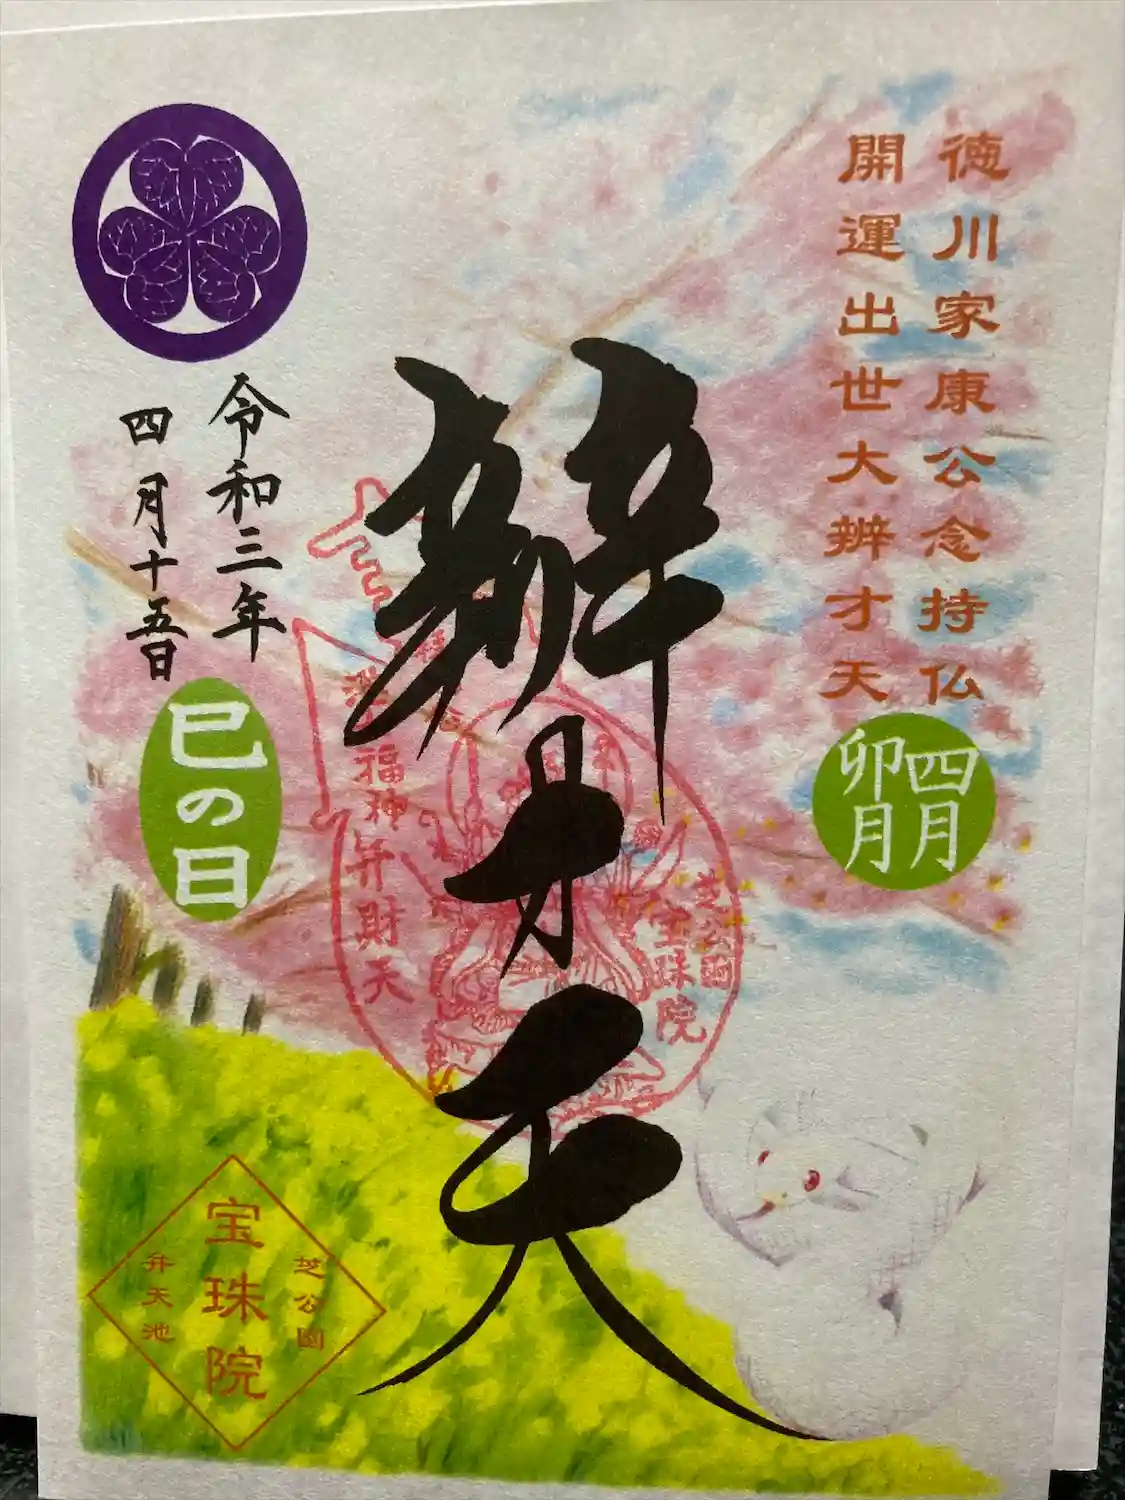 徳川家康公念持仏
開運出世大辨才天
四月
卯月
辨才天
福神弁財天
芝公園
宝珠院
令和三年
四月十五日
巳の日
芝公園
宝珠院
弁天池